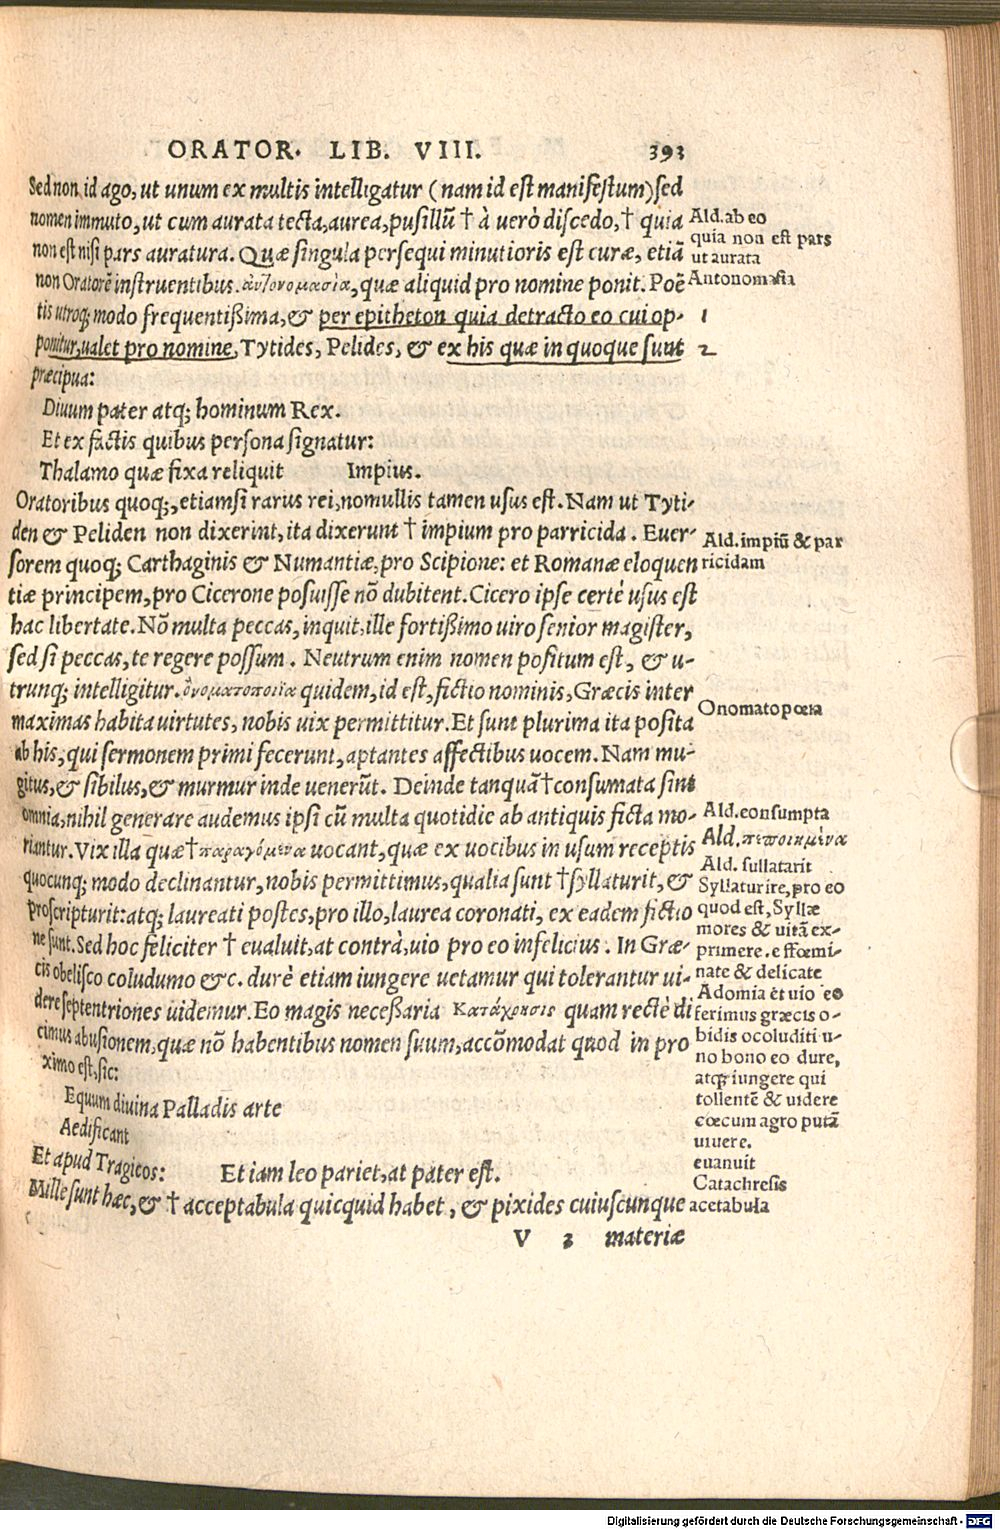 ORATOR. LIB. VIII. 393
Sed non id ago, ut unum ex multis intelligatur (nam id est manifestum) sed
nomen immuto, ut cum aurata tecta, aurea, pusillũ † à verò discedo, † quia
non est nisi pars auratura. Quæ singula persequi minutioris est curæ, etiã
non Oratorẽ instruentibus. ἀντονομασία, quæ aliquid pro nomine ponit. Poë
tis utroq; modo frequentißima, & per epitheton quia detracto eo cui op-
ponitur, ualet pro nomine, Tytides, Pelides, & ex his quæ in quoque sunt
præcipua:
Diuum pater atq; hominum Rex.
Et ex factis quibus persona signatur:
Thalamo quæ fixa reliquit Impius.
Oratoribus quoq;, etiamsi rarus rei, nonnullis tamen usus est. Nam ut Tyti-
den & Peliden non dixerint, ita dixerunt † impium pro parricida. Euer-
sorem quoq; Carthaginis & Numantiæ, pro Scipione: et Romanæ eloquen
tiæ principem, pro Cicerone posuisse nõ dubitent. Cicero ipse certè usus est
hac libertate. Nõ multa peccas, inquit, ille fortißimo uiro senior magister,
sed si peccas, te regere possum. Neutrum enim nomen positum est, & u-
trunq; intelligitur. ὀνοματοποιΐα quidem, id est, fictio nominis, Græcis inter
maximas habita uirtutes, nobis uix permittitur. Et sunt plurima ita posita
ab his, qui sermonem primi fecerunt, aptantes affectibus uocem. Nam mu-
gitus, & sibilus, & murmur inde venerũt. Deinde tanquã † consumata sint
omnia, nihil generare audemus ipsi cũ multa quotidie ab antiquis ficta mo-
riantur. Vix illa quæ † παραγόμενα uocant, quæ ex uocibus in usum receptis
quocunq; modo declinantur, nobis permittimus, qualia sunt † syllaturit, &
proscripturit: atq; laureati postes, pro illo, laurea coronati, ex eadem fictio
ne sunt. Sed hoc feliciter † eualuit, at contrà, uio pro eo infelicius. In Græ-
cis obelisco coludumo &c. durè etiam iungere uetamur qui tolerantur ui-
dere septentriones uidemur. Eo magis neceßaria Κατάχρησις quam rectè di
cimus abusionem, quæ nõ habentibus nomen suum, accõmodat quod in pro
ximo est, sic:
Equum diuina Palladis arte
Aedificant
Et apud Tragicos: Et iam leo pariet, at pater est.
Mille sunt hæc, & † acceptabula quicquid habet, & pixides cuiuscunque
V 3 materiæ
Ald. ab eo
quia non est pars
ut aurata
Antonomasia
1
2
Ald. impiũ & par
ricidam
Onomatopœia
Ald. consumpta
Ald. πεποιημένα
Ald. sullatarit
Syllaturire, pro eo
quod est, Syllæ
mores & uitã ex-
primere. effœmi-
nate & delicate
Adomia èt uio eo
ferimus græcis o-
bidis ocoluditi u-
no bono eo dure,
atq; iungere qui
tollentẽ & uidere
cœcum agro putã
uiuere.
euanuit
Catachresis
acetabula
Digitalisierung gefördert durch die Deutsche Forschungsgemeinschaft - DFG